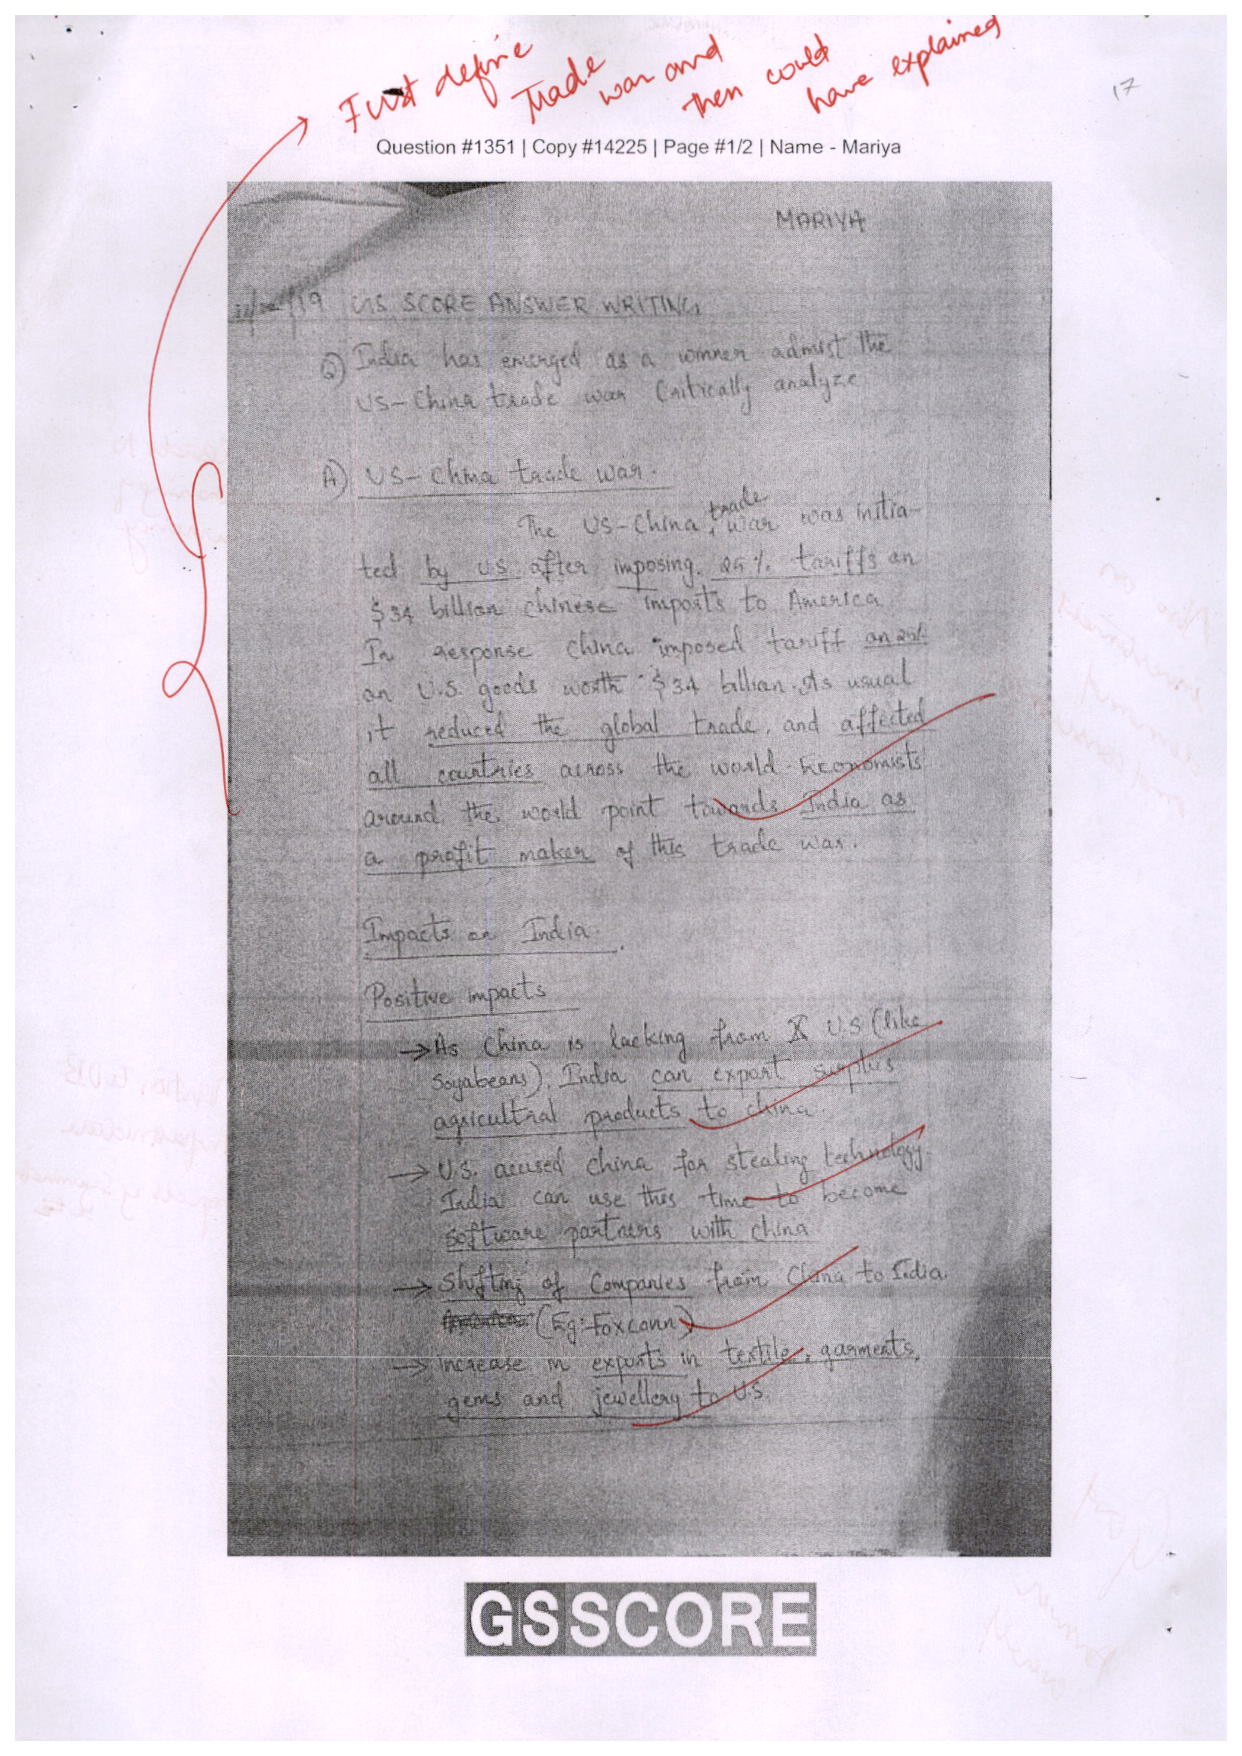 First define
trade
war and
then could
have explained
17
Question #1351 | Copy #14225 | Page #1/2 | Name - Mariya
MARIYA
/19 GS SCORE ANSWER WRITING
Q) India has emerged as a winner admist the
US-China trade war Critically analyze
A) US-China trade war.
The US-China trade war was initia-
ted by US after imposing 25% tariffs on
$34 billion chinese imports to America
In response China imposed tariff on 25%
on U.S. goods worth $34 billion. As usual
it reduced the global trade, and affected
all countries across the world. Economists
around the world point towards India as
a profit maker of this trade war.
Impacts on India.
Positive impacts
→ As China is lacking from U.S (like
Soyabeans), India can export surplus
agricultral products to china.
→ U.S. accused China for stealing technology.
India can use this time to become
software partners with china
→ Shifting of Companies from China to India
(Eg: Foxconn)
→ increase in exports in textile, garments,
gems and jewellery to U.S.
GSSCORE